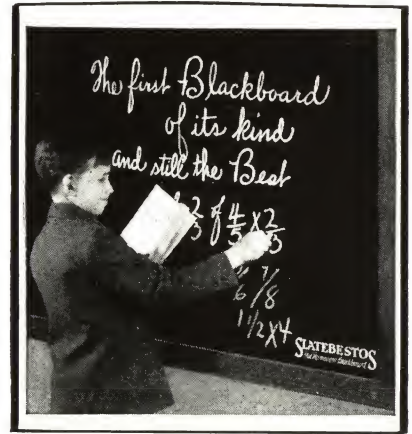 The first Blackboard
of its kind
and still the Best
2/3 of 4/5 x 2/3
7/8
1 1/2 x 4
SLATEBESTOS